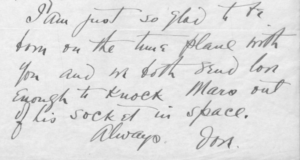 I am just so glad to be
born on the time plane with
you and we both send love
enough to knock Mars out
of his socket in space.
Always. Don.